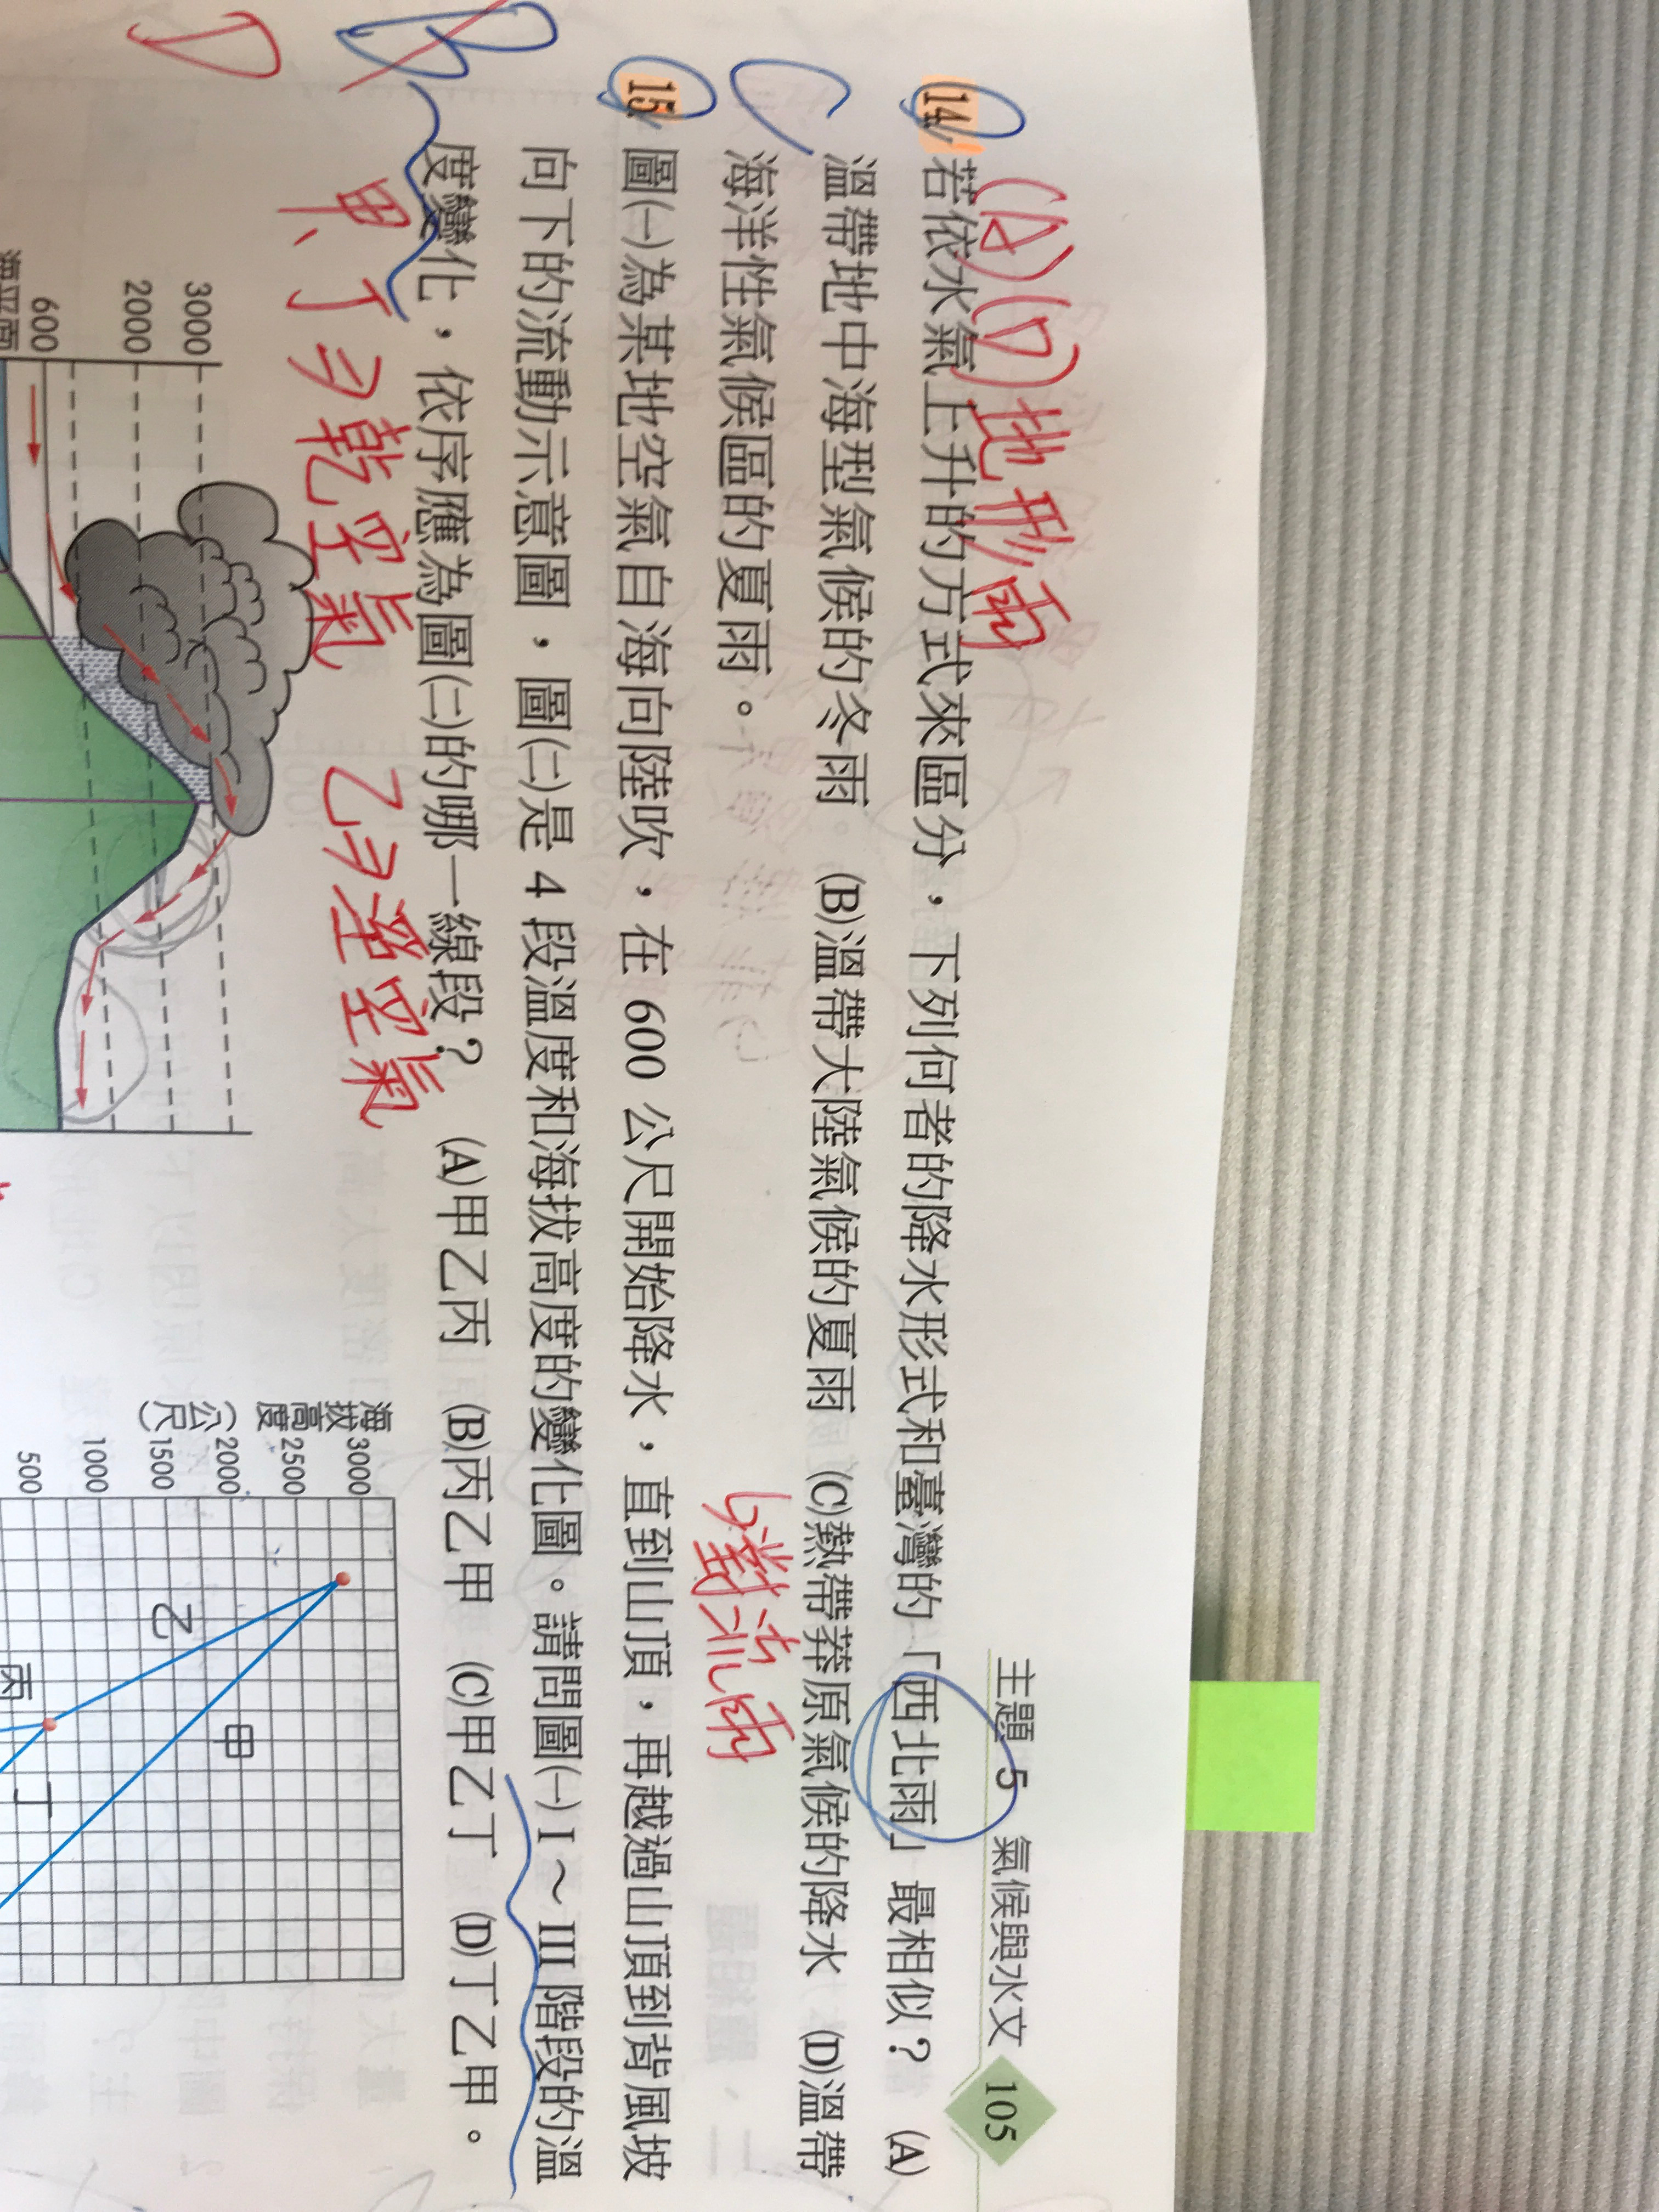 主題 5 氣候與水文 105
(A)(D)地形雨
14. 若依水氣上升的方式來區分，下列何者的降水形式和臺灣的「西北雨」最相似？ (A)
溫帶地中海型氣候的冬雨 (B)溫帶大陸氣候的夏雨 (C)熱帶莽原氣候的降水 (D)溫帶
C
海洋性氣候區的夏雨。
對流雨
15. 圖㈠為某地空氣自海向陸吹，在 600 公尺開始降水，直到山頂，再越過山頂到背風坡
向下的流動示意圖，圖㈡是 4 段溫度和海拔高度的變化圖。請問圖㈠ I～III 階段的溫
B
度變化，依序應為圖㈡的哪一線段？ (A)甲乙丙 (B)丙乙甲 (C)甲乙丁 (D)丁乙甲。
D
甲、丁為乾空氣 乙為溼空氣
3000
2000
600
海平面
海拔高度(公尺)
3000
2500
2000
1500
1000
500
甲
乙
丙
丁